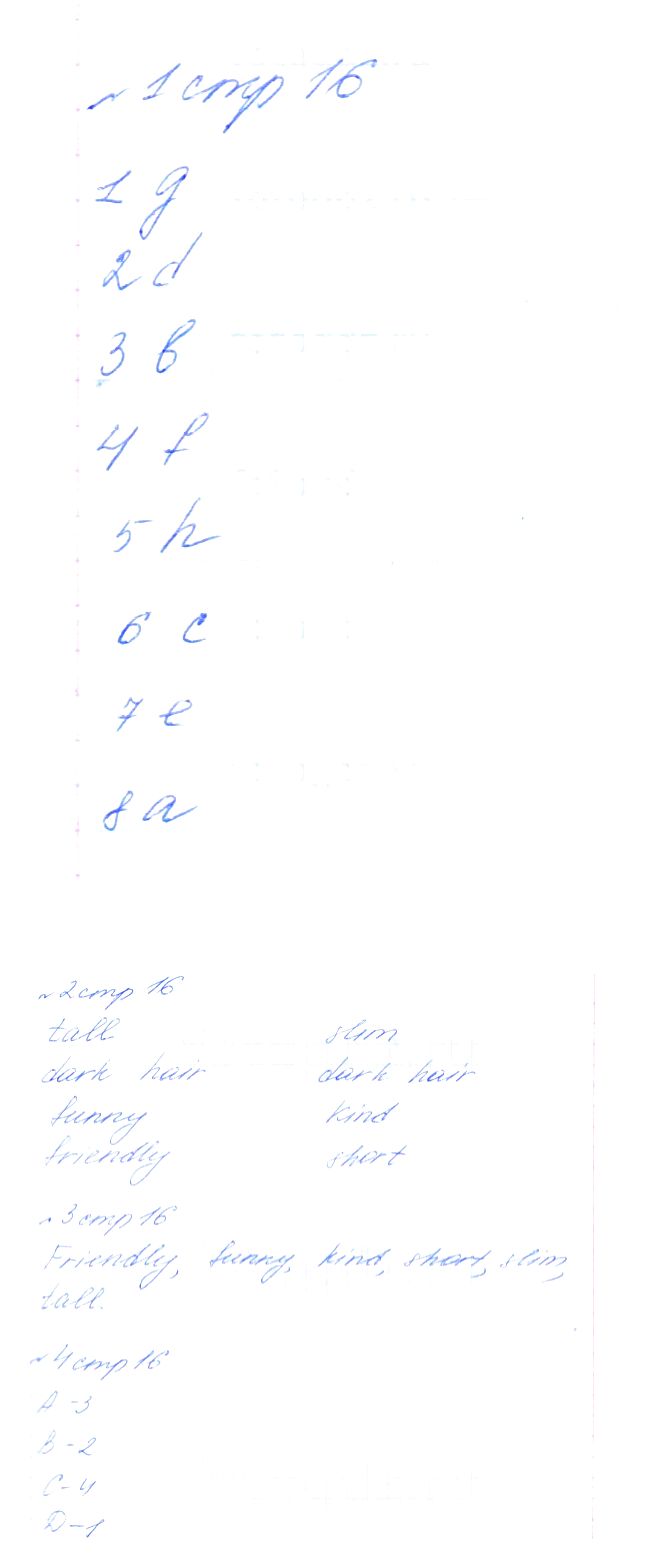 ~ 1 стр 16
1 g
2 d
3 b
4 f
5 h
6 c
7 e
8 a
~ 2 стр 16
tall slim
dark hair dark hair
funny kind
friendly short
~ 3 стр 16
Friendly, funny, kind, short, slim,
tall.
~ 4 стр 16
A - 3
B - 2
C - 4
D - 1